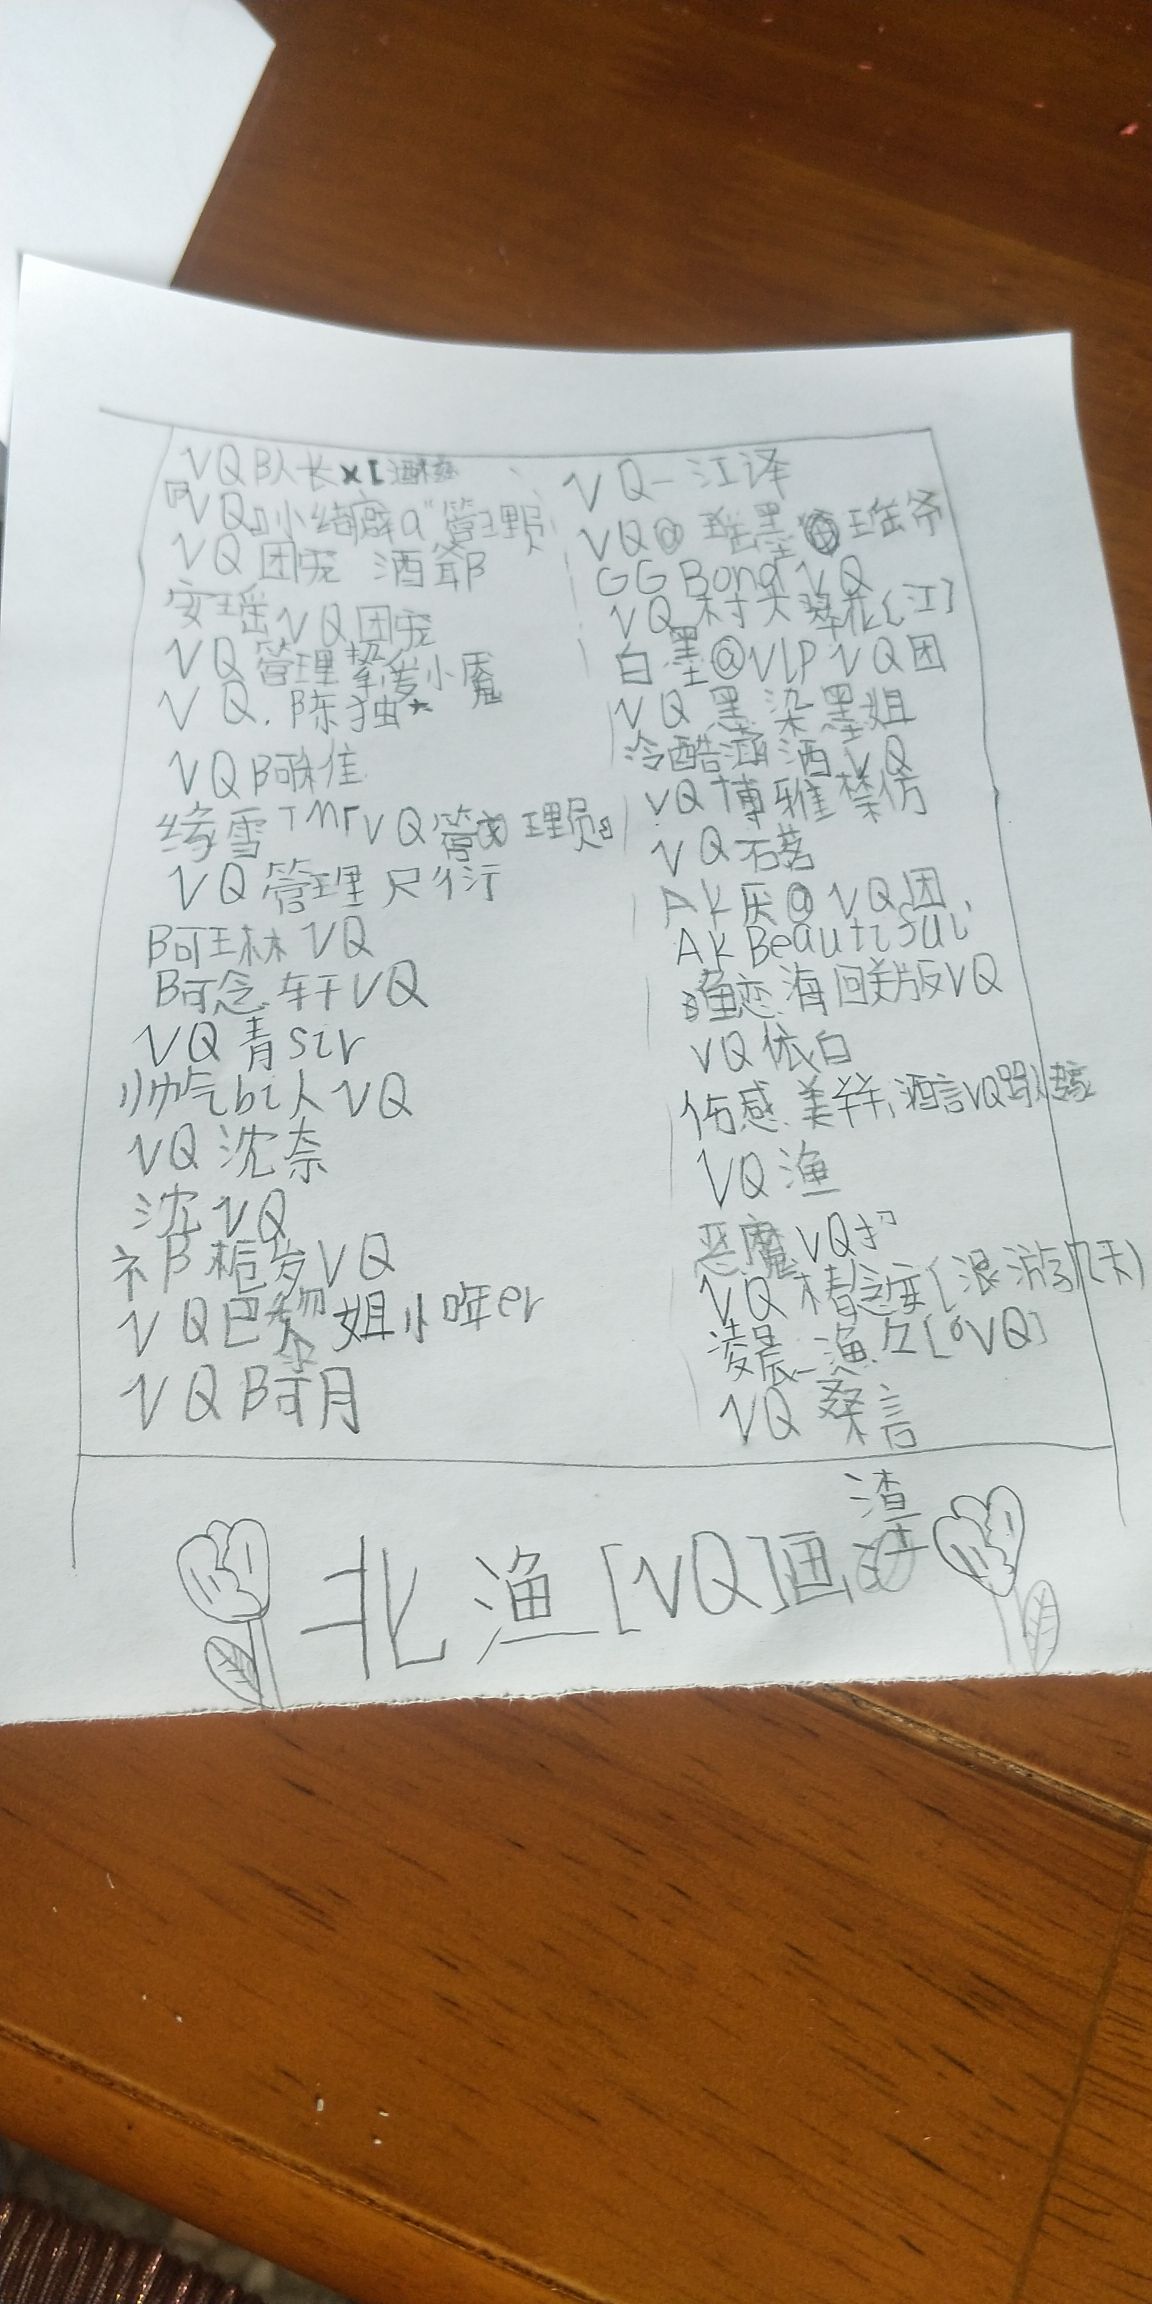 VQ队长
『VQ』小 a"管理员
VQ 团宠 酒爺
安瑶 VQ团宠
VQ 管理 挚爱小魇
VQ.陈独
VQ 阿 佳
缘雪 TMr VQ管 理员
VQ 管理 尺衍
阿琳 VQ
阿念.轩VQ
VQ 青sir
帅气bi人 VQ
VQ 沈奈
沈 VQ
祁 栀岁 VQ
VQ巴黎 姐小哖er
VQ 阿月
VQ-江译
VQ@ 瑶墨 瑶爷
GG Bond VQ
VQ 村头翠花[江]
白墨@VIP VQ团
VQ 墨染墨姐
冷酷涵酒 VQ
VQ 博雅禁仿
VQ 石落
AK厌@ VQ团
AK Beautiful
渔恋.海 回美版VQ
VQ 依白
伤感.美 酒言VQ
VQ 渔
恶魔.VQ
VQ 椿之安(浪游 天)
凌晨_渔. [VQ]
VQ 桑言
北渔[VQ]画渣